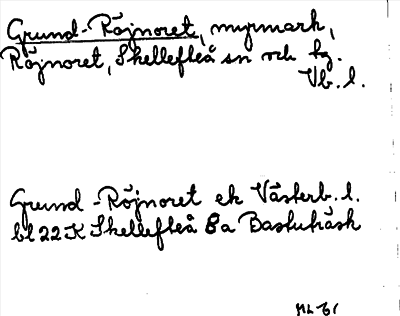 Grund-Röjnoret, myrmark,
Röjnoret, Skellefteå sn och hg.
Vb. l.
Grund-Röjnoret ek Västerb. l.
bl 22 K Skellefteå 8a Bastuträsk